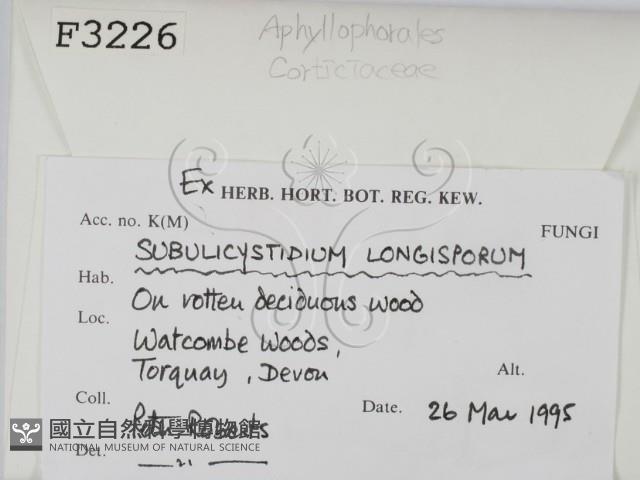 F3226
Aphyllophorales
Corticiaceae
Ex HERB. HORT. BOT. REG. KEW.
Acc. no. K(M)
FUNGI
SUBULICYSTIDIUM LONGISPORUM
Hab. On rotten deciduous wood
Loc. Watcombe Woods,
Torquay, Devon
Alt.
Coll. Peter Roberts
Date. 26 Mar 1995
國立自然科學博物館
NATIONAL MUSEUM OF NATURAL SCIENCE
Det. — " —